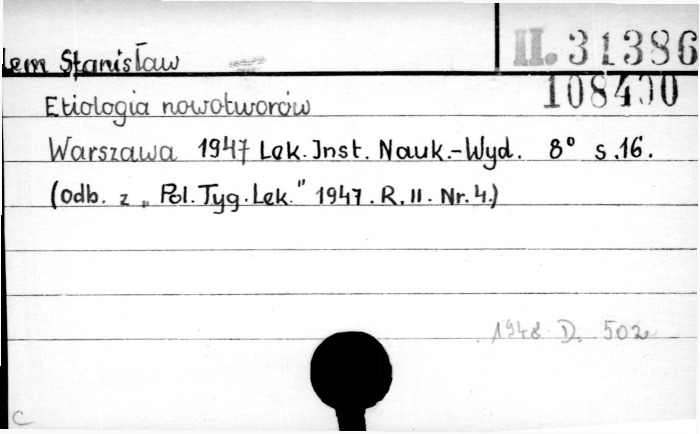 Lem Stanisław
II. 31386
108400
Etiologia nowotworów
Warszawa 1947 Lek. Inst. Nauk.-Wyd. 8° s.16.
(Odb. z „Pol. Tyg. Lek." 1947. R. II. Nr. 4.)
1948 D. 502
C